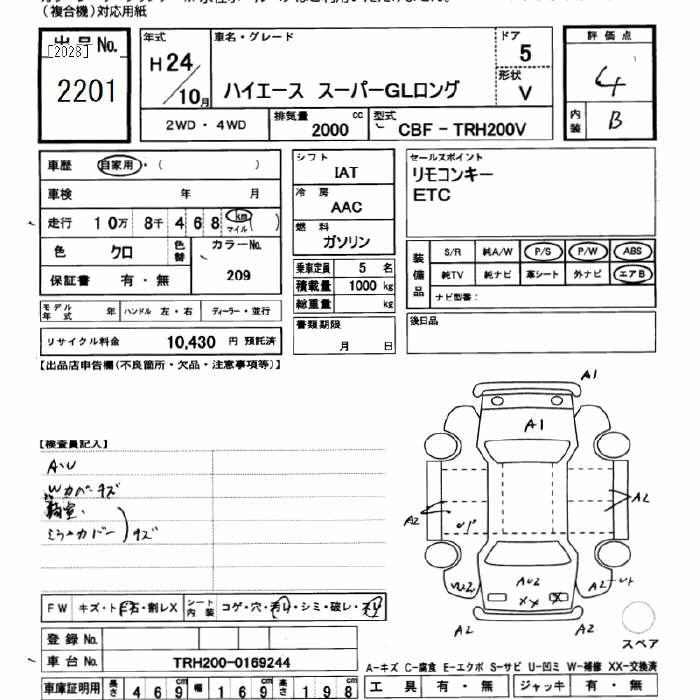 (複合機)対応用紙
出品No.
[2028]
2201
年式
H24/10月
車名・グレード
ハイエース スーパーGLロング
ドア
5
形状
V
評価点
4
内装
B
2WD・4WD
排気量
2000 cc
型式
CBF - TRH200V
車歴 自家用・( )
車検 年 月
走行 10万 8千 468 km マイル( )
色 クロ 色替
カラーNo.
209
保証書 有・無
モデル年式 年 ハンドル 左・右 ディーラー・並行
リサイクル料金 10,430 円 預託済
シフト
IAT
冷房
AAC
燃料
ガソリン
乗車定員 5 名
積載量 1000 kg
総重量 kg
書類期限
月 日
セールスポイント
リモコンキー
ETC
装備品
S/R 純A/W P/S P/W ABS
純TV 純ナビ 革シート 外ナビ エアB
ナビ型番:
後日品
【出品店申告欄(不良箇所・欠品・注意事項等)】
【検査員記入】
A・U
Wカバーキズ
ミラーカバー キズ
A1
A1
A2
A2
A2
A2
UP
U2
AU2
XX
X
A2
A2
A2
スペア
FW キズ・ト石・割レX シート内装 コゲ・穴・汚レ・シミ・破レ・スレ
登録No.
車台No. TRH200-0169244
車庫証明用 長さ 469 cm 幅 169 cm 高さ 198 cm
A-キズ C-腐食 E-エクボ S-サビ U-凹ミ W-補修 XX-交換済
工具 有・無 ジャッキ 有・無